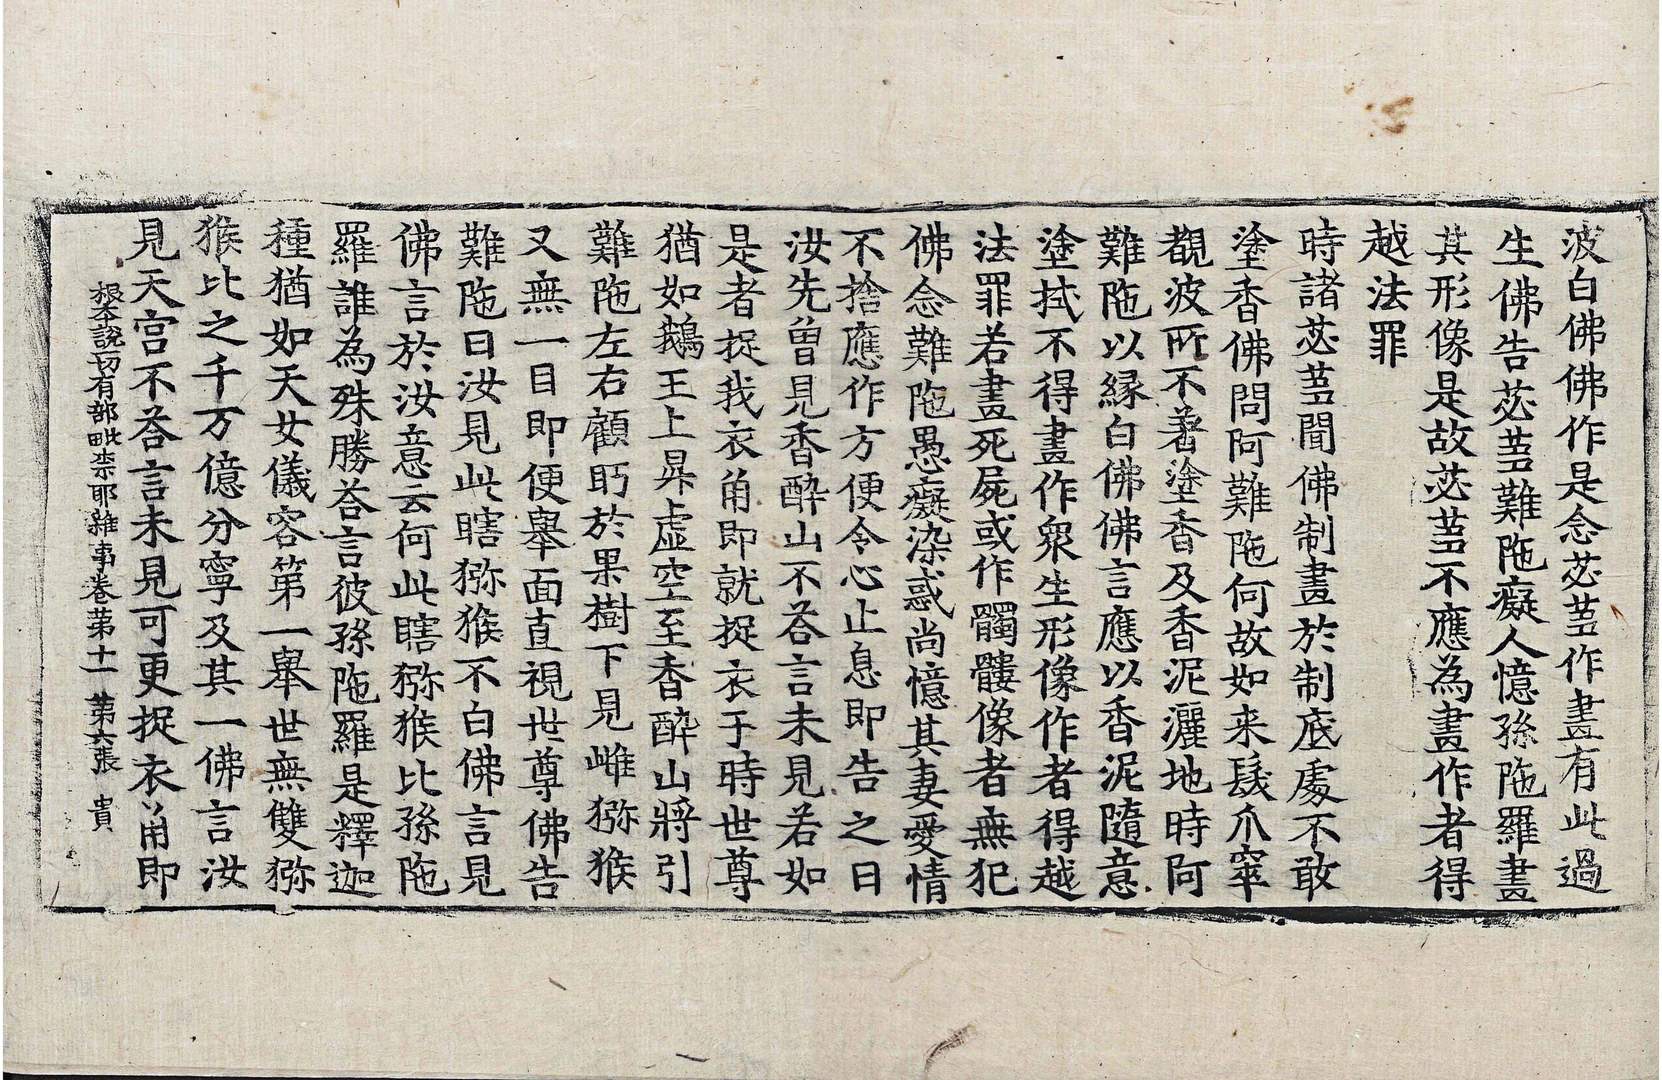 波白佛佛作是念苾蒭作畫有此過
生佛告苾蒭難陁癡人憶孫陁羅畫
其形像是故苾蒭不應為畫作者得
越法罪
時諸苾蒭聞佛制畫於制底處不敢
塗香佛問阿難陁何故如来髮爪窣
覩波所不著塗香及香泥灑地時阿
難陁以緣白佛佛言應以香泥隨意
塗拭不得畫作衆生形像作者得越
法罪若畫死屍或作髑髏像者無犯
佛念難陁愚癡染惑尚憶其妻愛情
不捨應作方便令心止息即告之曰
汝先曾見香醉山不荅言未見若如
是者捉我衣角即就捉衣于時世尊
猶如鵝王上昇虛空至香醉山將引
難陁左右顧眄於果樹下見雌獼猴
又無一目即便舉面直視世尊佛告
難陁曰汝見此瞎獼猴不白佛言見
佛言於汝意云何此瞎獼猴比孫陁
羅誰為殊勝荅言彼孫陁羅是釋迦
種猶如天女儀容第一舉世無雙獼
猴比之千万億分寧及其一佛言汝
見天宮不荅言未見可更捉衣角即
根本說一切有部毗柰耶雜事卷第十一 第六張 貴